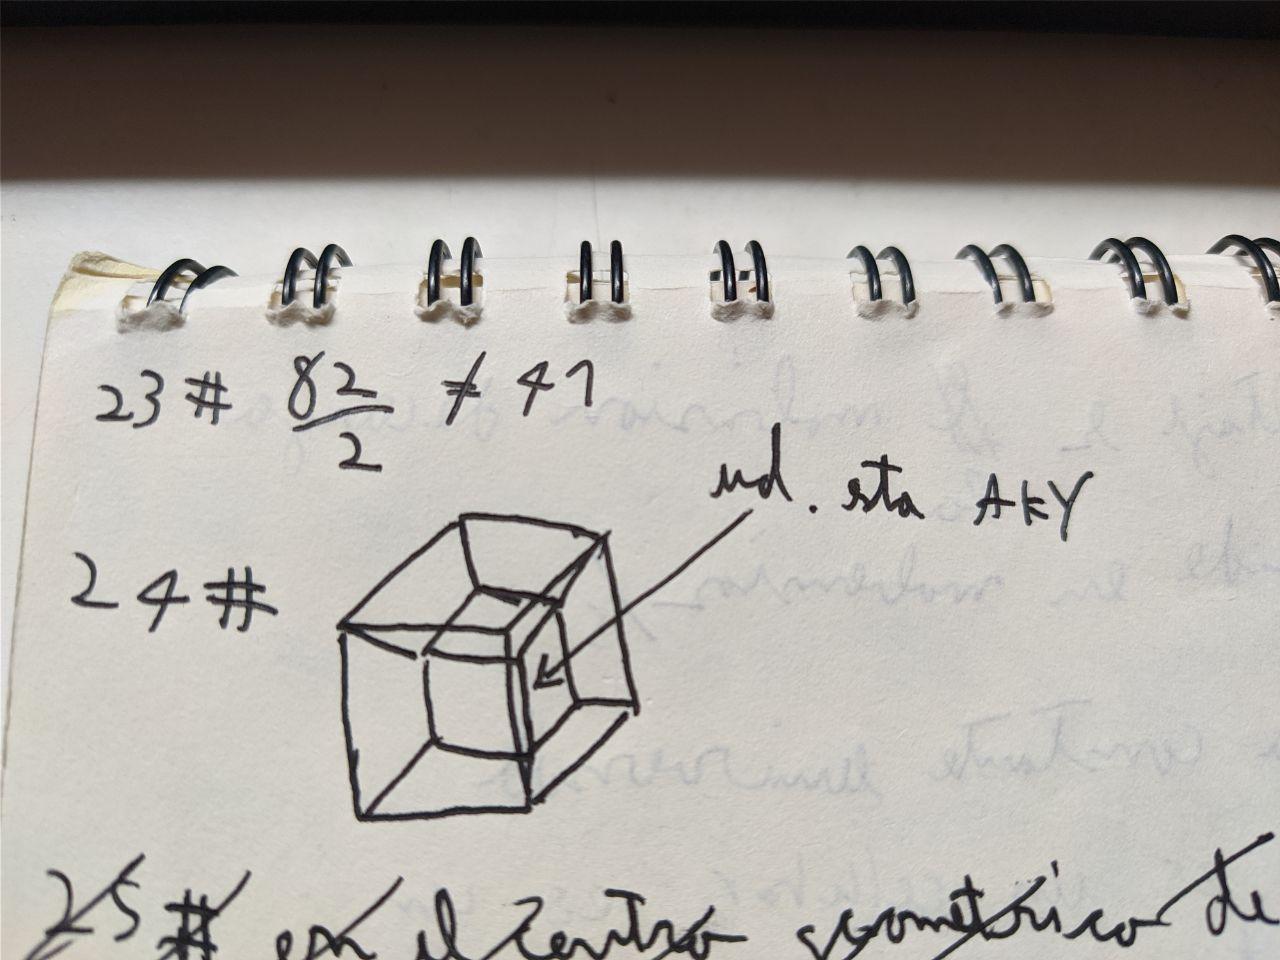 23# 82/2 ≠ 41
ud. sta AKY
24#
25# en el centro geometrico de